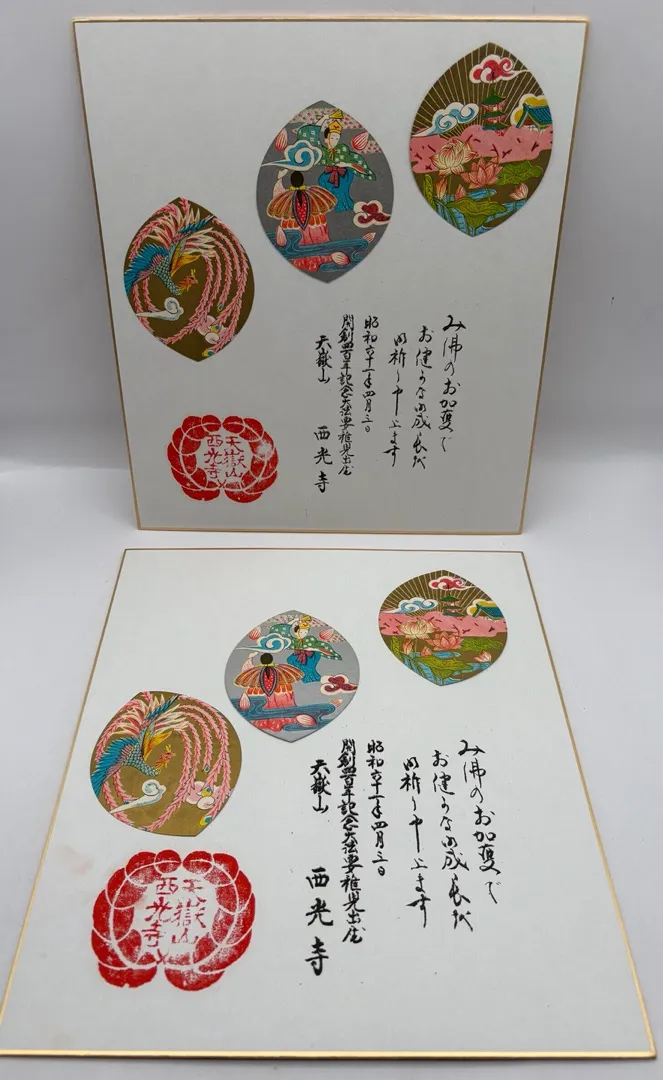 み佛のお加護で
お健かな御成長を
御祈り申上ます
昭和六十一年四月三日
開創四百年記念大法要稚児出仕
天嶽山 西光寺
天嶽山
西光寺
み佛のお加護で
お健かな御成長を
御祈り申上ます
昭和六十一年四月三日
開創四百年記念大法要稚児出仕
天嶽山 西光寺
天嶽山
西光寺